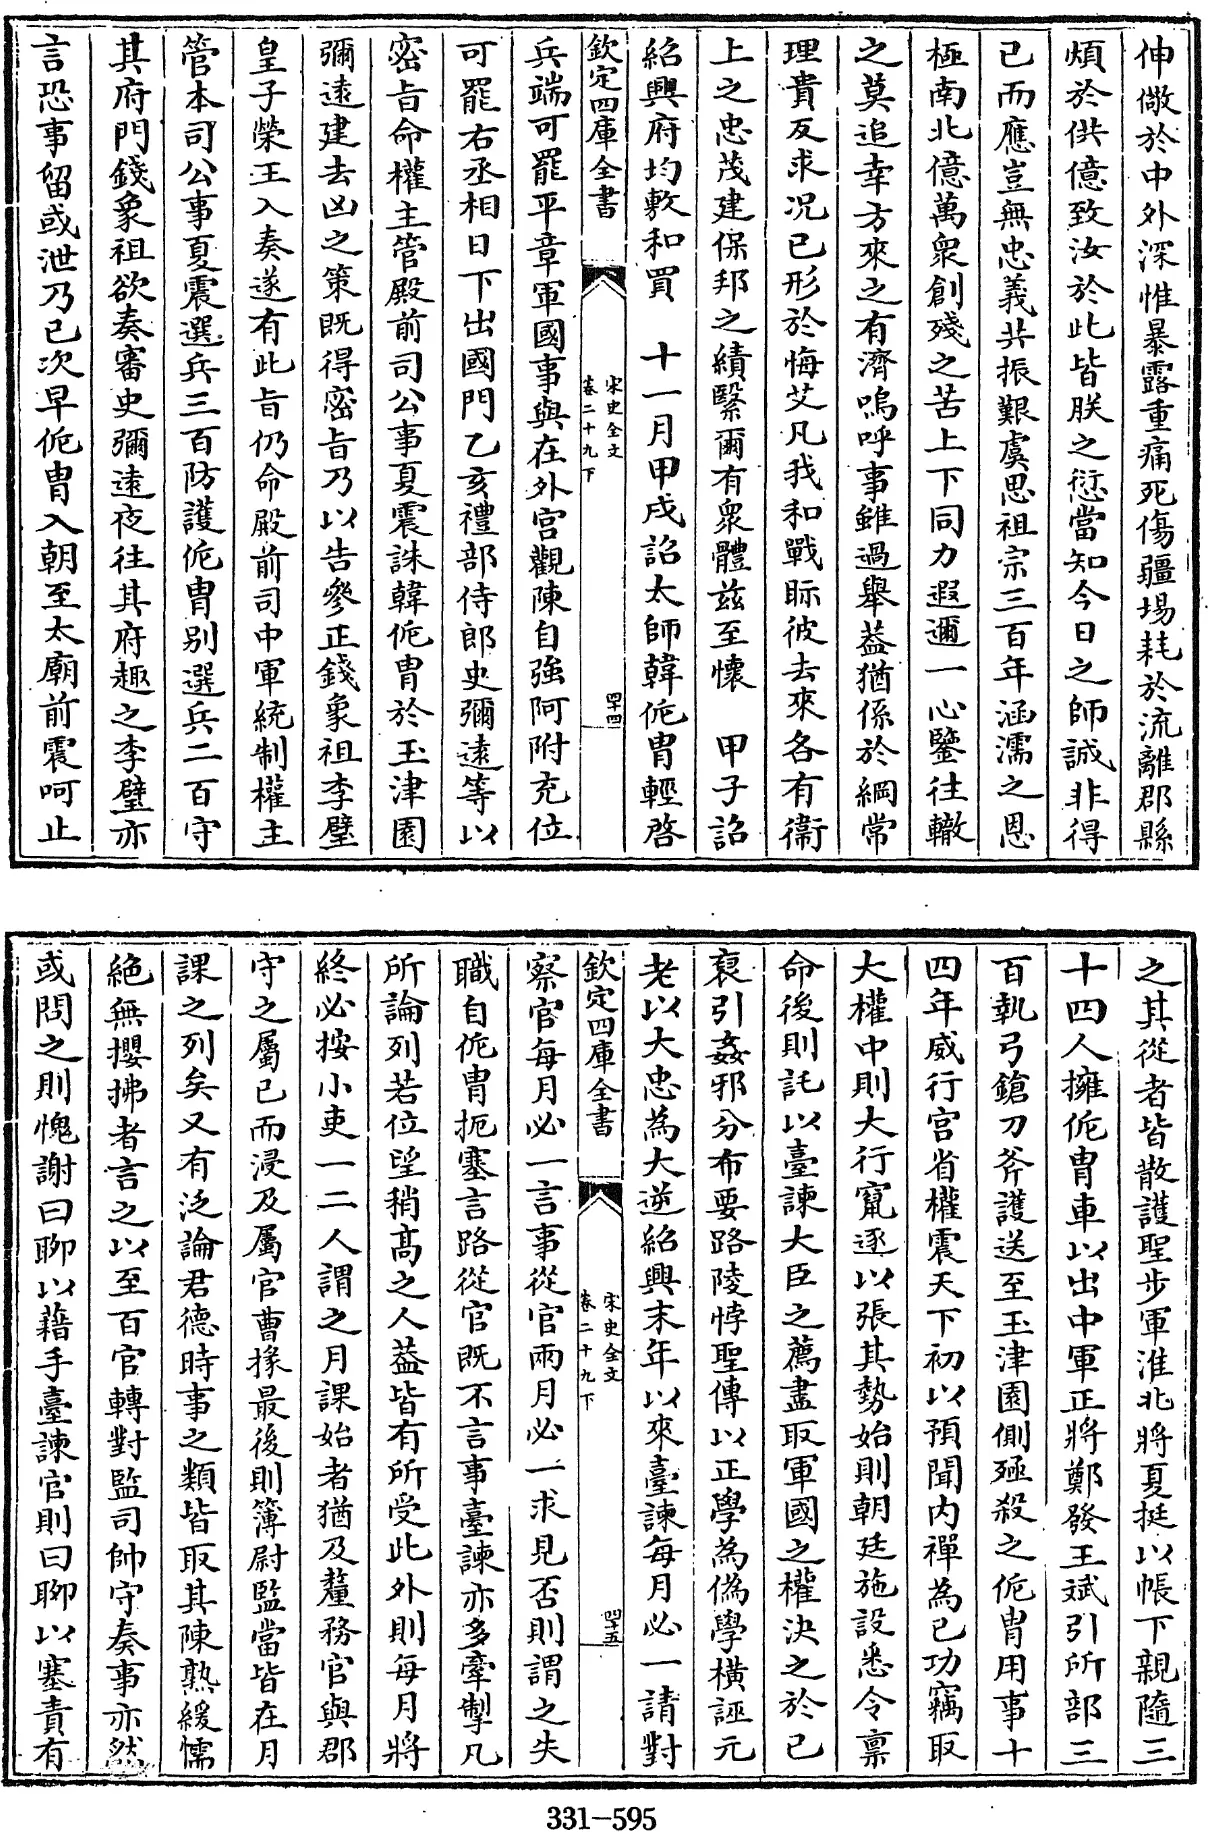 伸儆於中外深惟暴露重痛死傷疆埸耗於流離郡縣
煩於供億致汝於此皆朕之愆當知今日之師誠非得
已而應豈無忠義共振艱虞思祖宗三百年涵濡之恩
極南北億萬衆創殘之苦上下同力遐邇一心鑒往轍
之莫追幸方來之有濟嗚呼事雖過舉葢猶係於綱常
理貴反求况已形於悔艾凡我和戰眎彼去來各有衞
上之忠茂建保邦之績緊爾有衆體兹至懷　甲子詔
紹興府均敷和買　十一月甲戌詔太師韓侂胄輕啓
欽定四庫全書
宋史全文
卷二十九下
四十四
兵端可罷平章軍國事與在外宫觀陳自強阿附充位
可罷右丞相日下出國門乙亥禮部侍郎史彌逺等以
密旨命權主管殿前司公事夏震誅韓侂胄於玉津園
彌逺建去凶之策既得密旨乃以告參正錢象祖李壁
皇子榮王入奏遂有此旨仍命殿前司中軍統制權主
管本司公事夏震選兵三百防護侂胄别選兵二百守
其府門錢象祖欲奏審史彌逺夜往其府趣之李壁亦
言恐事留或泄乃已次早侂胄入朝至太廟前震呵止
之其從者皆散護聖步軍淮北將夏挺以帳下親隨三
十四人擁侂胄車以出中軍正將鄭發王斌引所部三
百執弓鎗刀斧護送至玉津園側殛殺之侂胄用事十
四年威行宫省權震天下初以預聞内禪為已功竊取
大權中則大行竄逐以張其勢始則朝廷施設悉令禀
命後則託以臺諫大臣之薦盡取軍國之權決之於已
裒引姦邪分布要路陵悖聖傳以正學為偽學横誣元
老以大忠為大逆紹興末年以來臺諫每月必一請對
欽定四庫全書
宋史全文
卷二十九下
四十五
察官每月必一言事從官兩月必一求見否則謂之失
職自侂胄扼塞言路從官既不言事臺諫亦多牽掣凡
所論列若位望稍髙之人葢皆有所受此外則每月將
終必按小吏一二人謂之月課始者猶及釐務官與郡
守之屬已而浸及屬官曹掾最後則簿尉監當皆在月
課之列矣又有泛論君德時事之類皆取其陳熟緩懦
絶無攖拂者言之以至百官轉對監司帥守奏事亦然
或問之則愧謝曰聊以藉手臺諫官則曰聊以塞責有
331-595